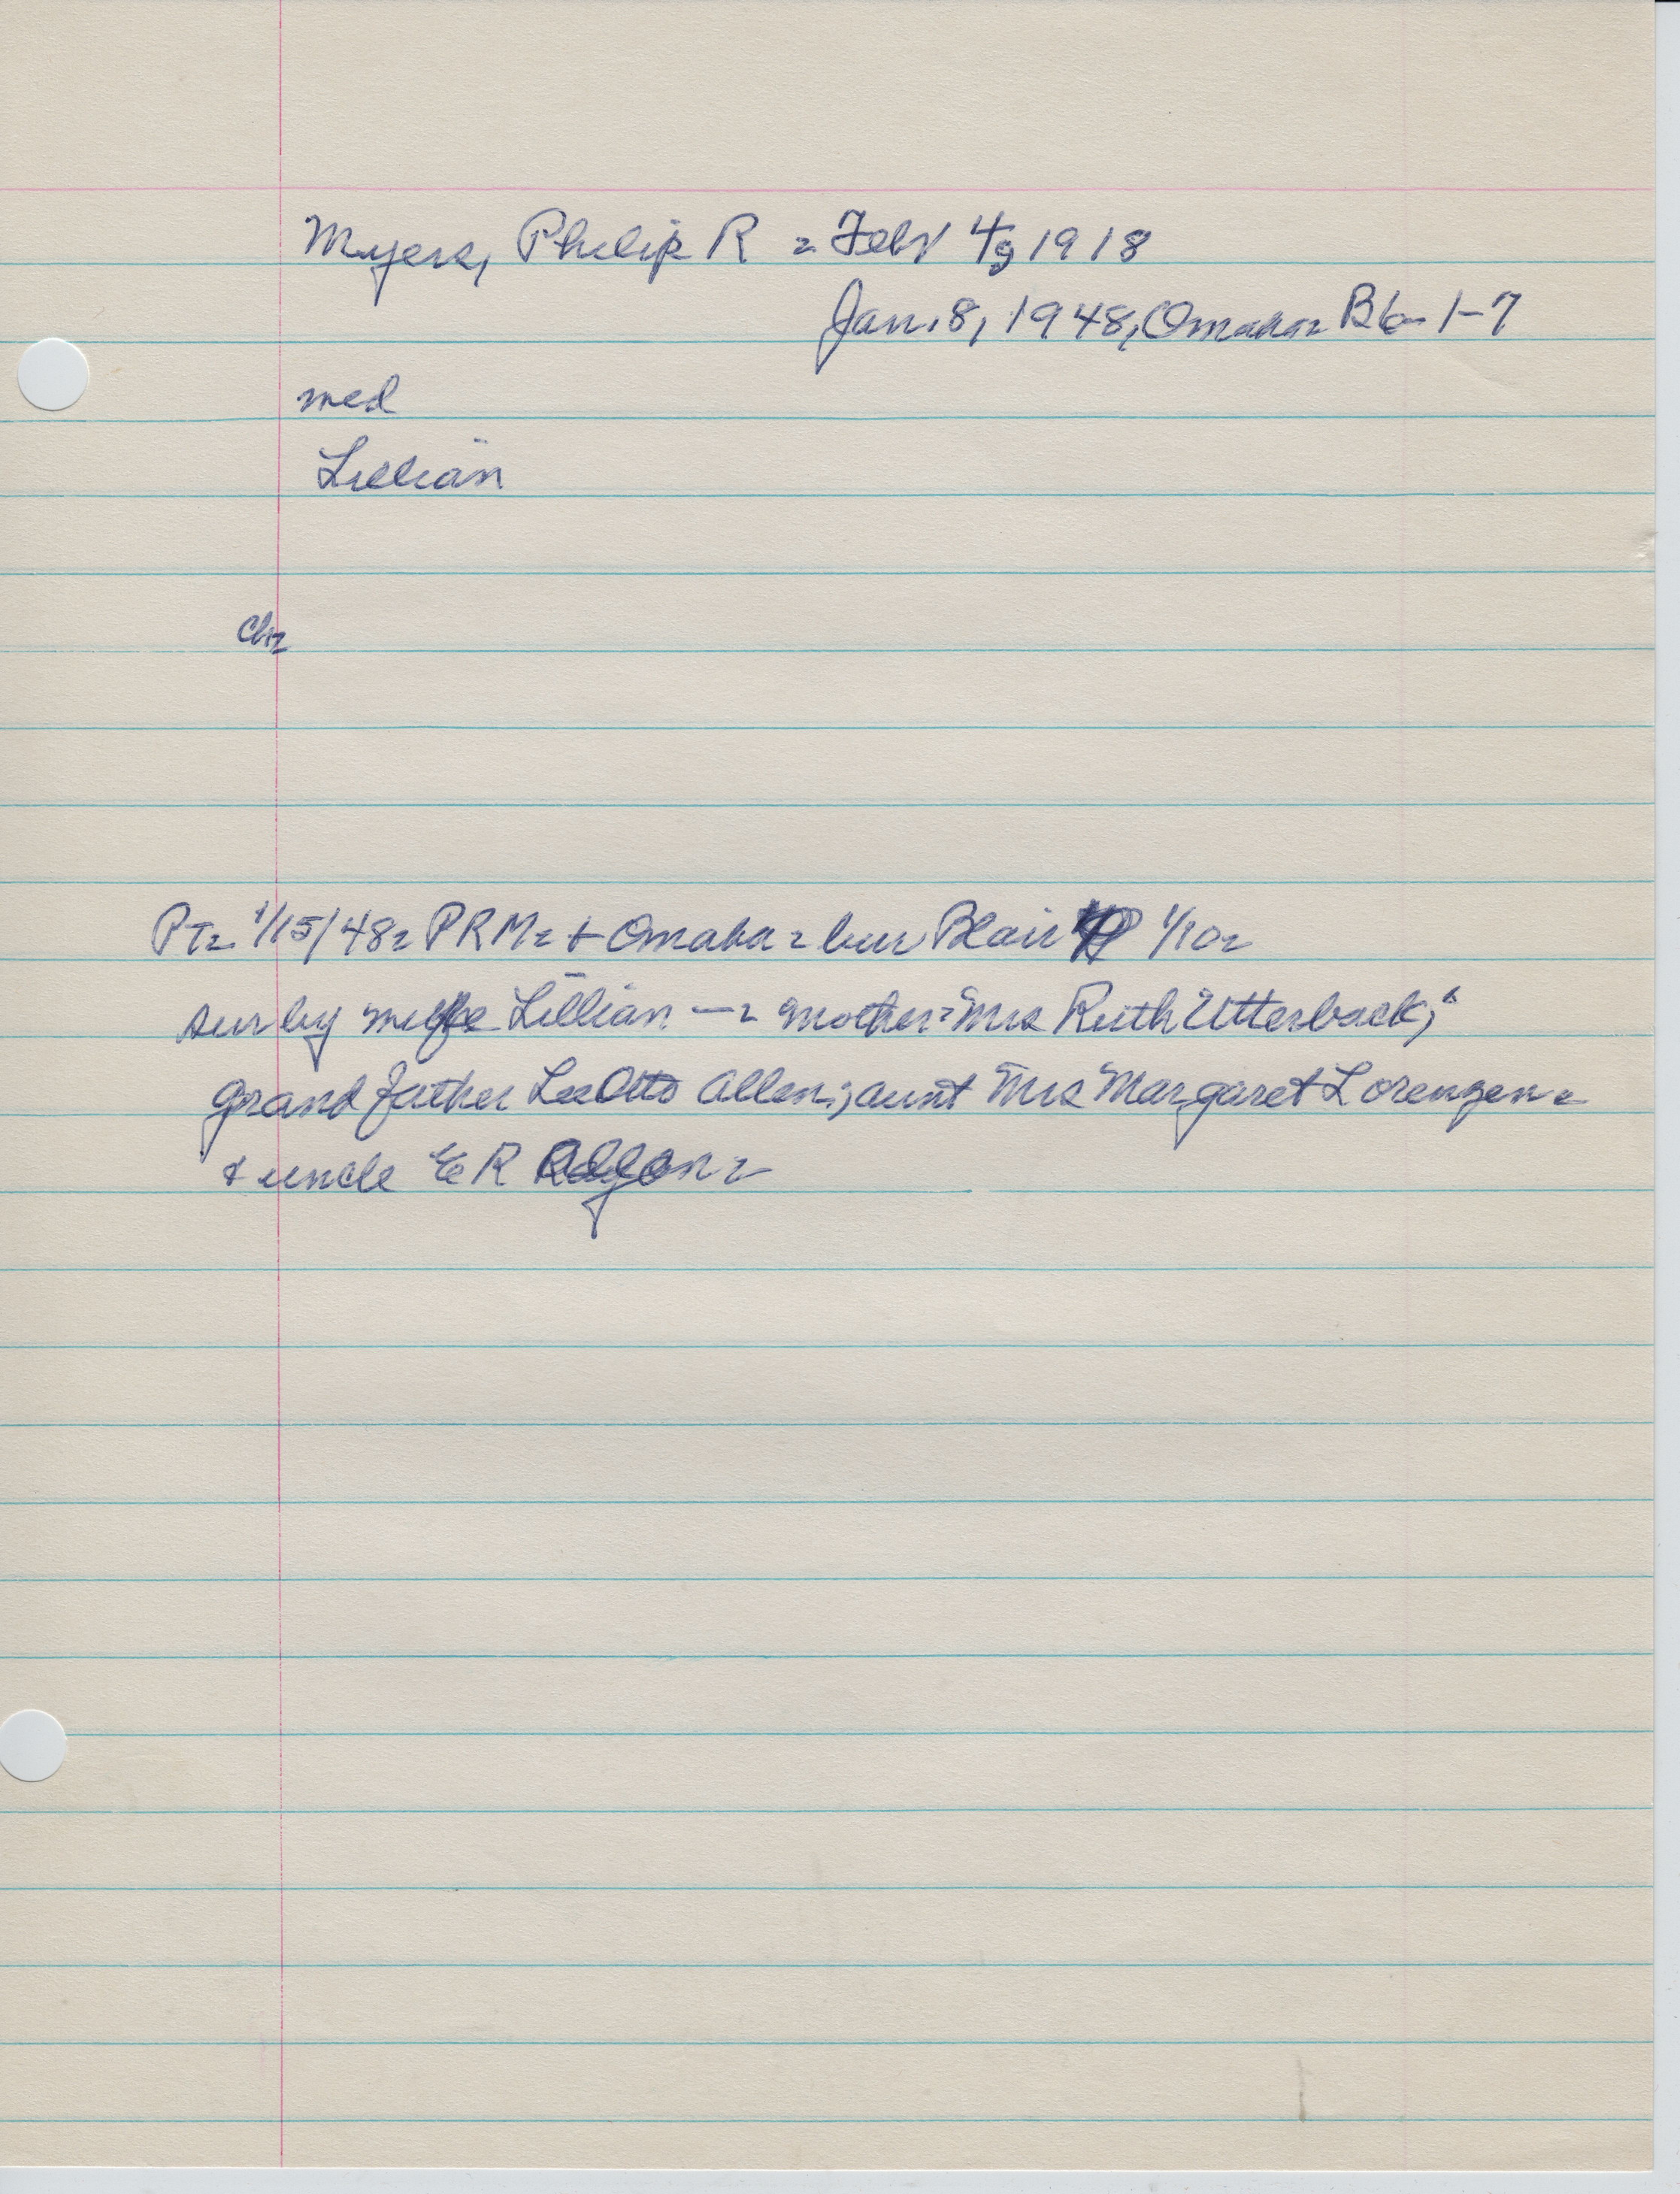 Myers, Philip R = Febr 4, 1918
Jan. 8, 1948, Omaha= Bla- 1-7
med
Lillian
Ch=
PT= 1/15/48= PRM= + Omaha = bur Blair 1/10=
sur by wife Lillian —= mother= Mrs Ruth Utterback;
grand father Lee Otto Allen; aunt Mrs Margaret Lorenzen=
& uncle E R